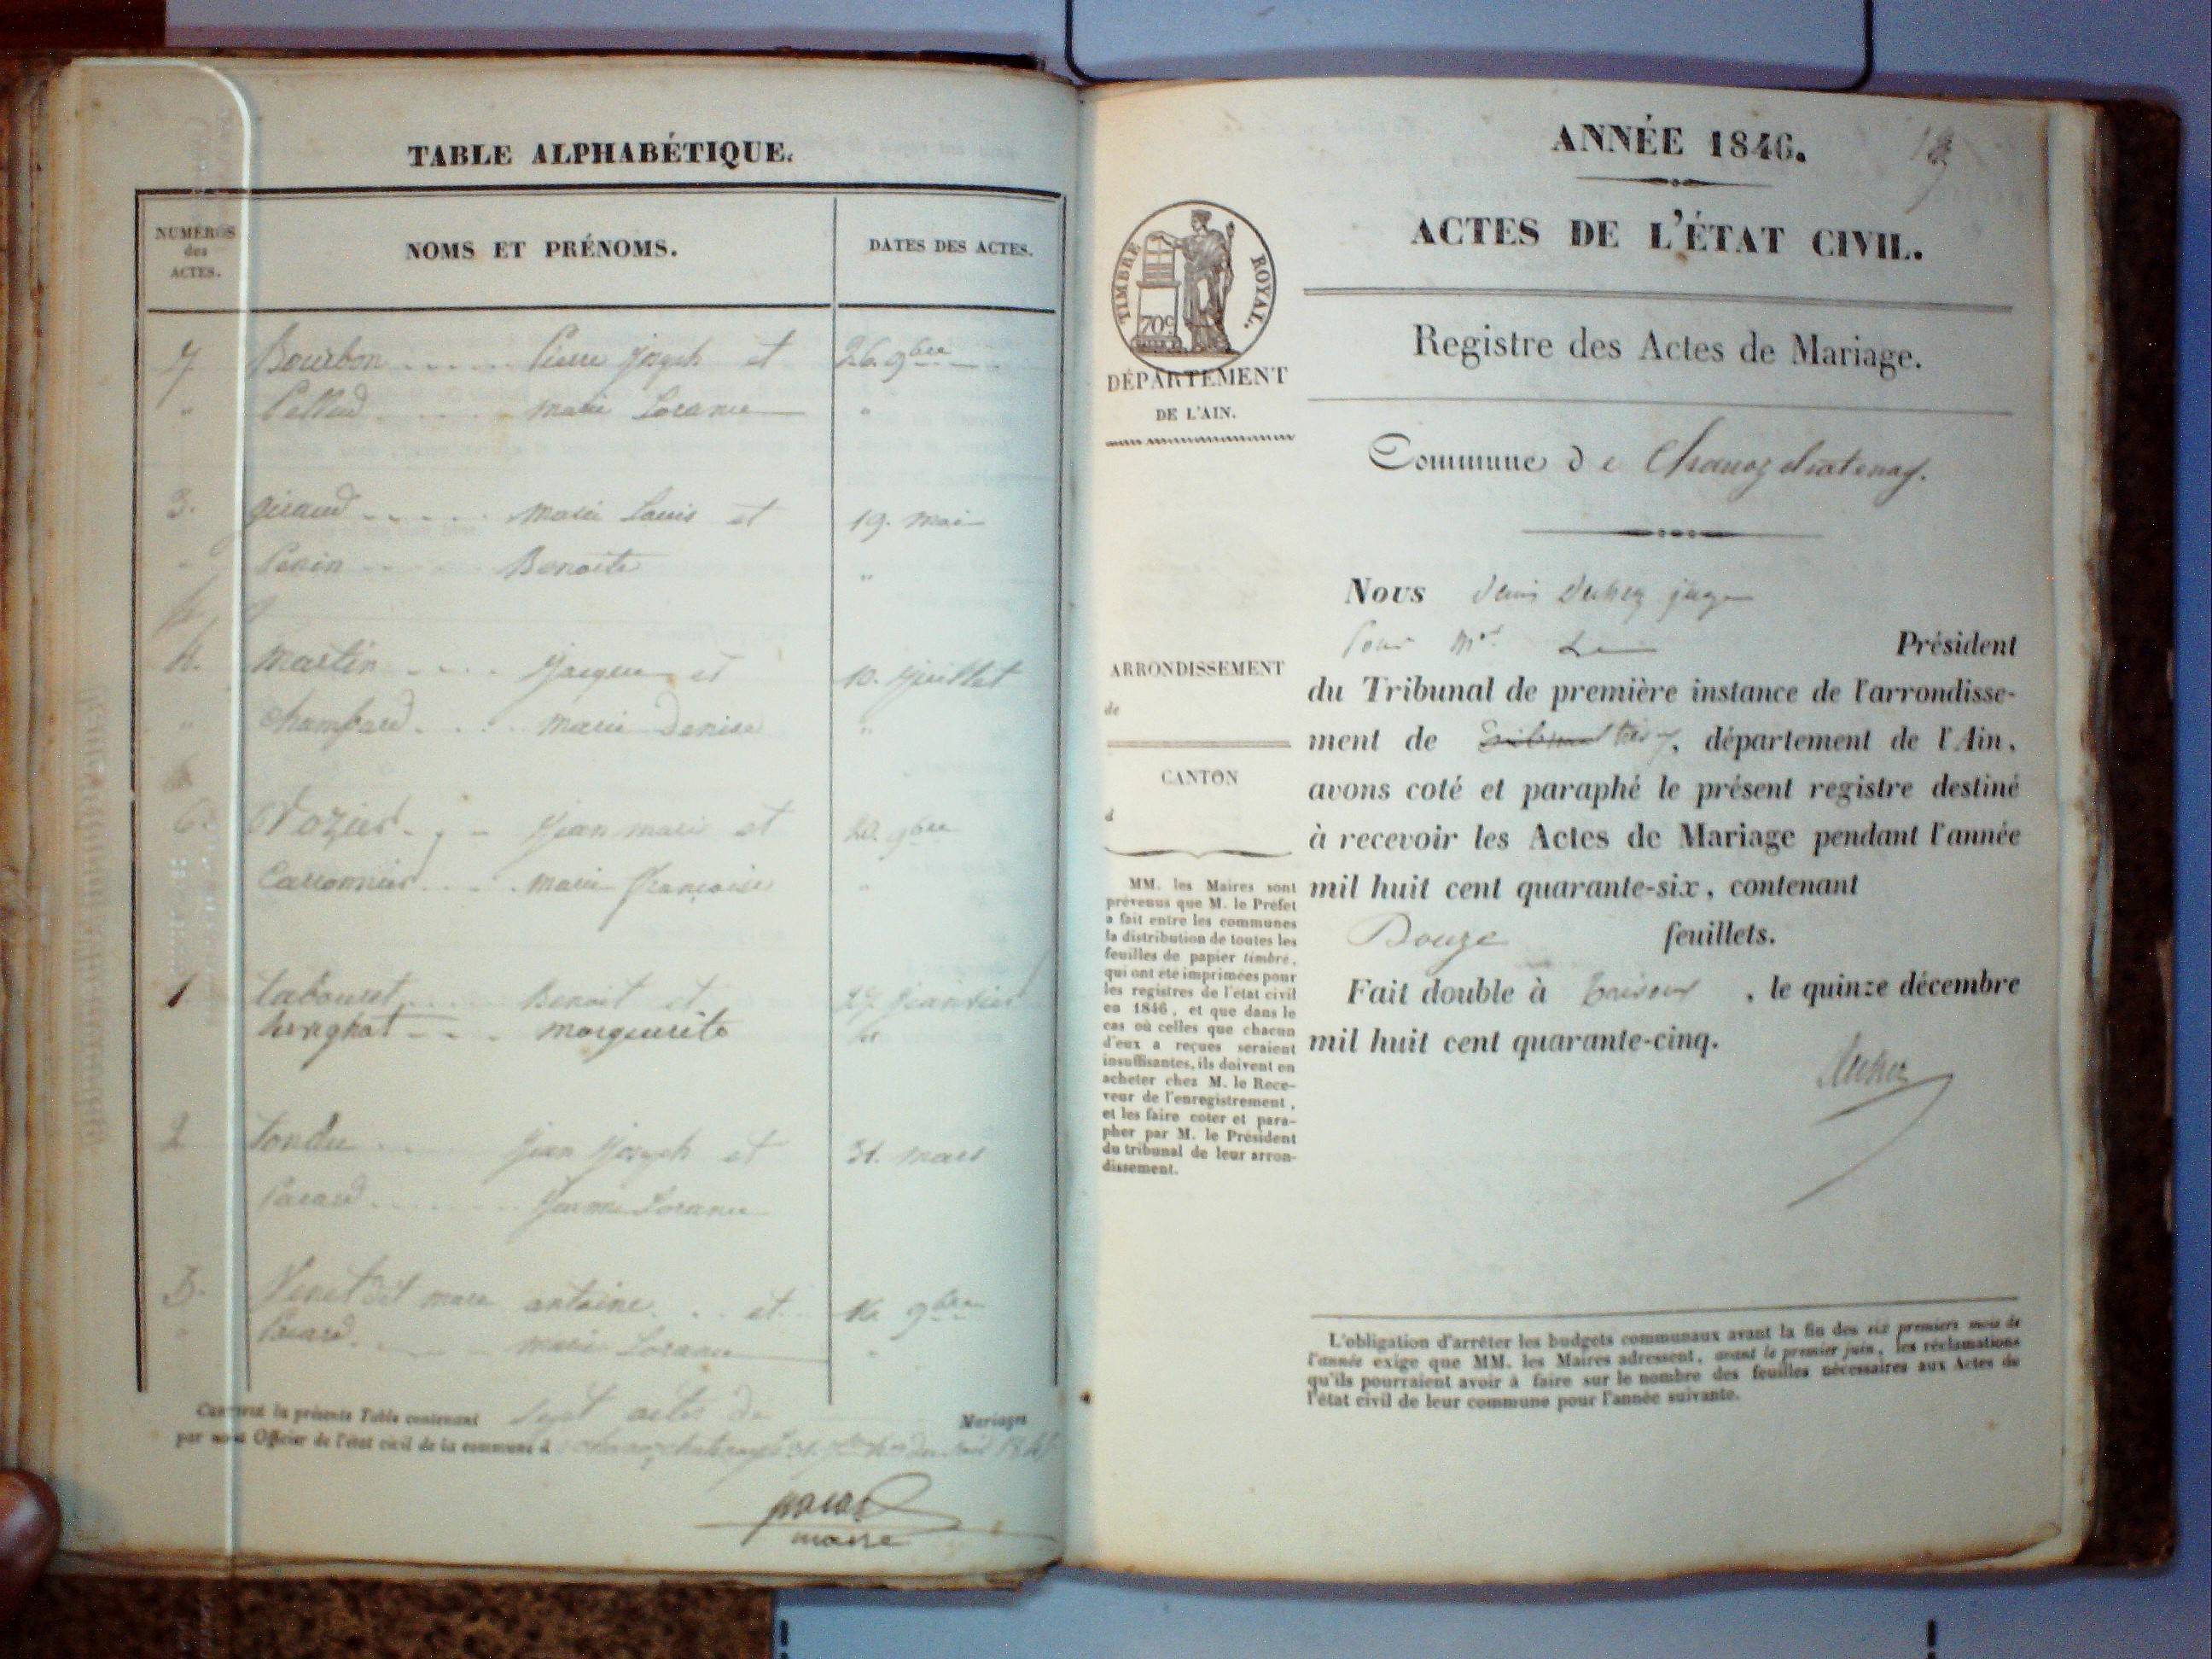 TABLE ALPHABÉTIQUE.
NUMÉROS des ACTES.
NOMS ET PRÉNOMS.
DATES DES ACTES.
7 Bourbon ..... Pierre Joseph et 26. 9bre
" Marie
3. Giraud ..... Marie Louis et 19. Mai
Benoite "
4. Martin .... Jacques et 10. Juillet
" Chambard. . . . Marie Denise "
6. Jean Marie et 9bre
Marie Françoise "
1 tabouret ..... Benoit et 27 Janvier
Marguerite
2 tondu ..... Jean Joseph et 31. Mars
5. Venet dit antoine . . et . 9bre
Marie
Certifié la présente Table contenant Sept actes de Mariages
par nous Officier de l'état civil de la commune d
maire
ANNÉE 1846.
19
ACTES DE L'ÉTAT CIVIL.
TIMBRE ROYAL.
70c
Registre des Actes de Mariage.
DÉPARTEMENT
DE L'AIN.
Commune de Chanoz chatenay.
Nous Denis juge
Pour Mr. Le Président
ARRONDISSEMENT
de
du Tribunal de première instance de l'arrondisse-
ment de , département de l'Ain,
CANTON
d
avons coté et paraphé le présent registre destiné
à recevoir les Actes de Mariage pendant l'année
mil huit cent quarante-six, contenant
Douze feuillets.
Fait double à , le quinze décembre
mil huit cent quarante-cinq.
MM. les Maires sont
prévenus que M. le Préfet
a fait entre les communes
la distribution de toutes les
feuilles de papier timbré,
qui ont été imprimées pour
les registres de l'état civil
en 1846, et que dans le
cas où celles que chacun
d'eux a reçues seraient
insuffisantes, ils doivent en
acheter chez M. le Rece-
veur de l'enregistrement,
et les faire coter et para-
pher par M. le Président
du tribunal de leur arron-
dissement.
L'obligation d'arrêter les budgets communaux avant la fin des six premiers mois de
l'année exige que MM. les Maires adressent, avant le premier juin, les réclamations
qu'ils pourraient avoir à faire sur le nombre des feuilles nécessaires aux Actes de
l'état civil de leur commune pour l'année suivante.